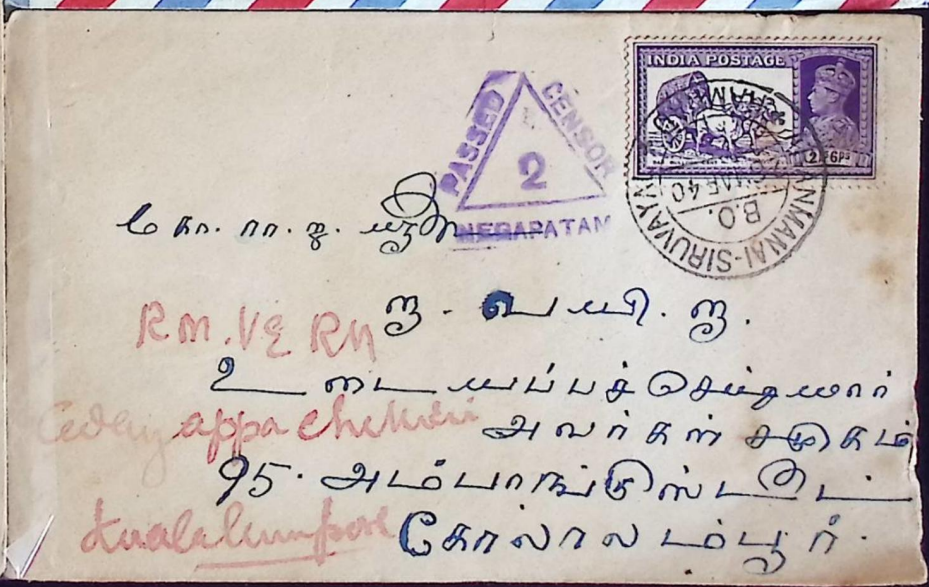 INDIA POSTAGE
2As 6Ps
PASSED CENSOR
2
NEGAPATAM
B.O.
ANMANAI-SIRUVAYAL
40
கோ. rா. ந.
ந. வெ யி. ந.
R M. VE RM
உடையப்பச் செட்டியார்
appa Chettiar
அவர்கள் சமுகம்
95. அம்பாங்குஸ்டிரீட்
Kuala lumpore
கோலாலம்பூர்.